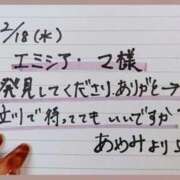 2/18(水)
エミシア・マ様
発見してくださりありがと→
立川で待っててもいいですか?
あめみより